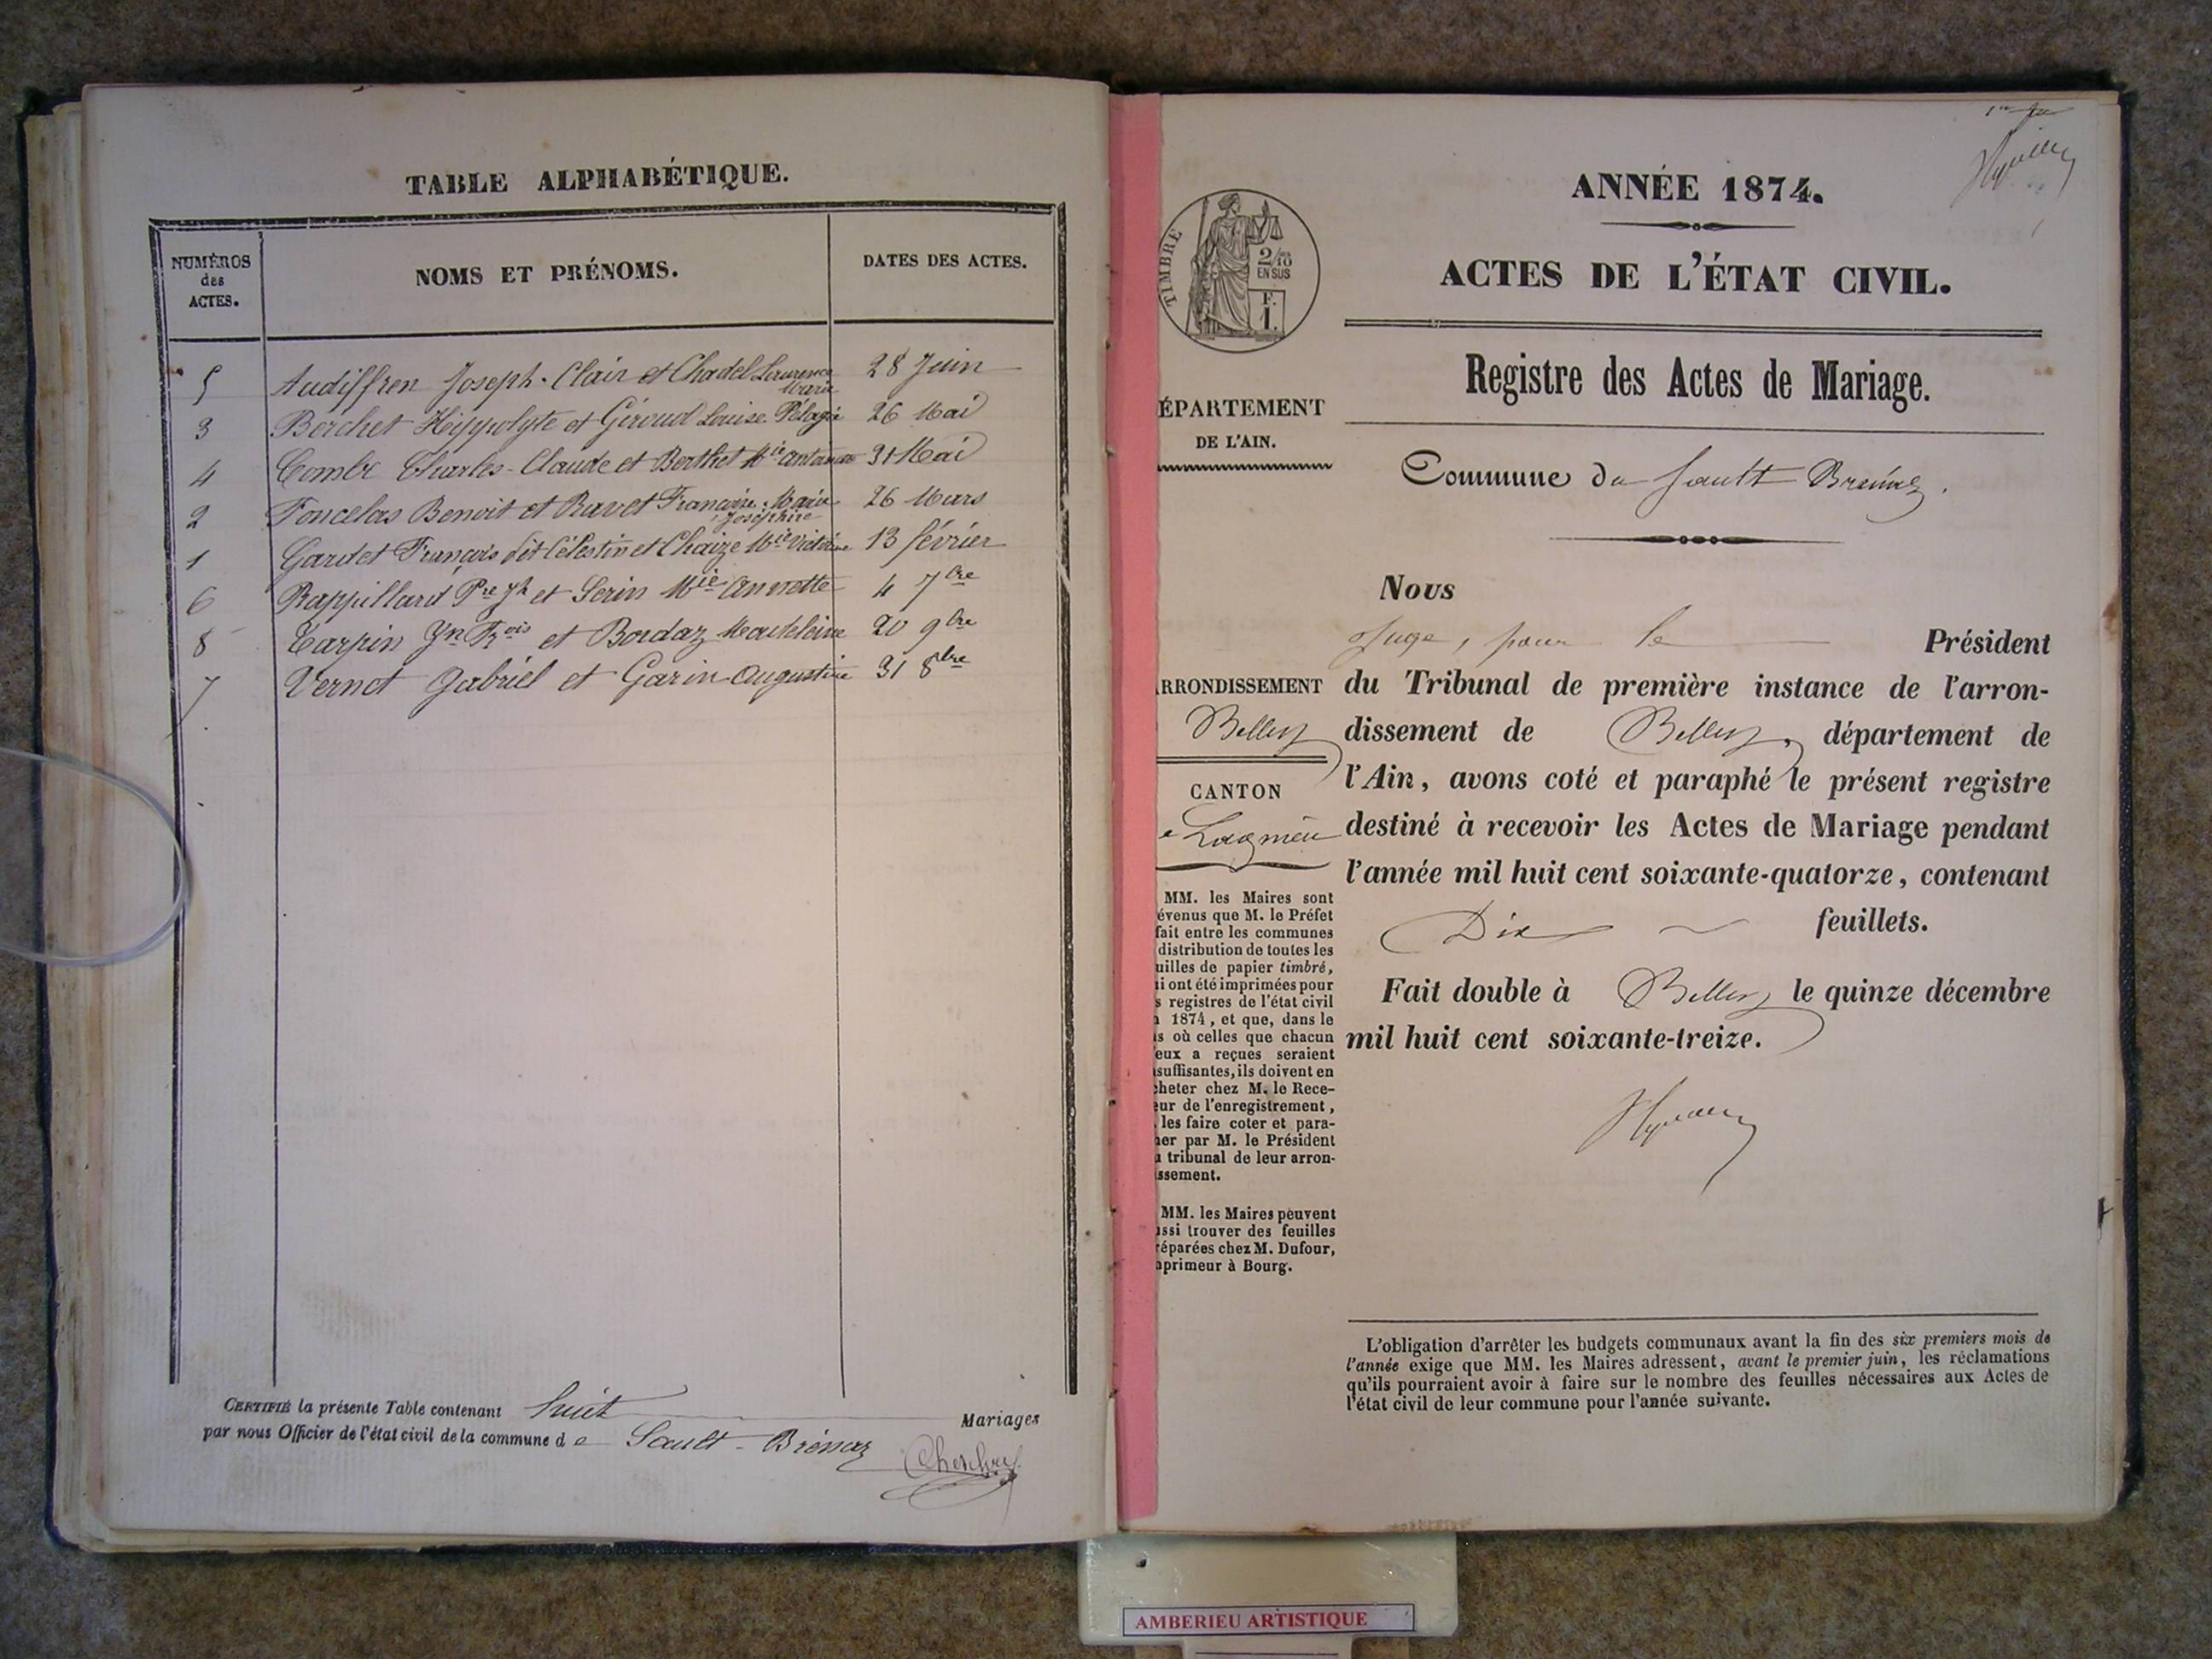 TABLE ALPHABÉTIQUE.
NUMÉROS des ACTES.
NOMS ET PRÉNOMS.
DATES DES ACTES.
5 Audiffren Joseph-Clair et Chadel Laurence Marie 28 Juin
3 Berchet Hippolyte et Giroud Louise Pélagie 26 Mai
4 Combe Charles-Claude et Berthet Mie 31 Mai
2 Foncelas Benoit et Ravet Françoise Marie Joséphine 26 Mars
1 Gardet François dit Célestin et Chaize Mie Victorine 13 février
6 Rappillard Pre Jh et Serin Mie Annette 4 7bre
8 Tarpin Jn Frois et Bordaz Madeleine 20 9bre
7 Vernot Gabriel et Garin Augustine 31 8bre
CERTIFIÉ la présente Table contenant huit Mariages
par nous Officier de l'état civil de la commune de Sault-Brénaz
TIMBRE
2/10 EN SUS
F. 1.
ANNÉE 1874.
ACTES DE L'ÉTAT CIVIL.
Registre des Actes de Mariage.
Commune de Sault Brénaz.
ÉPARTEMENT
DE L'AIN.
RRONDISSEMENT
Belley
CANTON
e Lagnieu
MM. les Maires sont
évenus que M. le Préfet
fait entre les communes
distribution de toutes les
uilles de papier timbré,
i ont été imprimées pour
s registres de l'état civil
1874, et que, dans le
s où celles que chacun
eux a reçues seraient
suffisantes, ils doivent en
cheter chez M. le Rece-
eur de l'enregistrement,
les faire coter et para-
her par M. le Président
u tribunal de leur arron-
ssement.
MM. les Maires peuvent
ussi trouver des feuilles
réparées chez M. Dufour,
mprimeur à Bourg.
Nous
Juge, pour le Président
du Tribunal de première instance de l'arron-
dissement de Belley, département de
l'Ain, avons coté et paraphé le présent registre
destiné à recevoir les Actes de Mariage pendant
l'année mil huit cent soixante-quatorze, contenant
Dix feuillets.
Fait double à Belley le quinze décembre
mil huit cent soixante-treize.
L'obligation d'arrêter les budgets communaux avant la fin des six premiers mois de
l'année exige que MM. les Maires adressent, avant le premier juin, les réclamations
qu'ils pourraient avoir à faire sur le nombre des feuilles nécessaires aux Actes de
l'état civil de leur commune pour l'année suivante.
AMBERIEU ARTISTIQUE